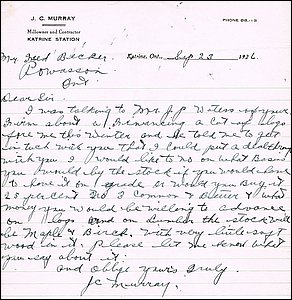 J. C. MURRAY
PHONE 28-13
Millowner and Contractor
KATRINE STATION
Mr Fred Becker
Katrine, Ont., Sep 23 1936.
Powassan
Ont
Dear Sir.
I was talking to Mr J P Waters of your
Town about financing a cut of logs
for me this Winter and he told me to get
in tuch with you that I could put a deal thru
with you I would like to no on what basis
you would by the stock if you would have
to have it on grade or would you buy it
25 percent No 3 Common & Better & what
money you would be willing to advance
on logs and on Lumber the stock will
be Maple & Birch. with very little soft
wood in it, please let me know what
you say about it.
and oblige yours truly.
J C Murray.